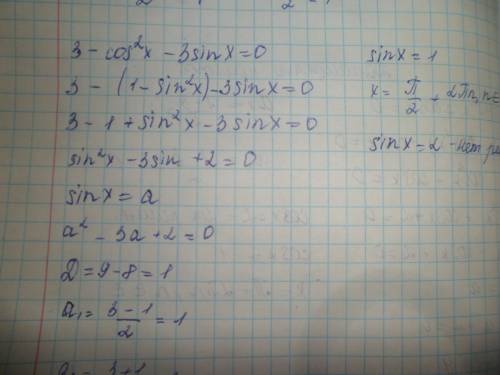 3 - cos²x - 3sinx = 0
3 - (1 - sin²x) - 3sinx = 0
3 - 1 + sin²x - 3sinx = 0
sin²x - 3sin + 2 = 0
sinx = a
a² - 3a + 2 = 0
D = 9 - 8 = 1
a₁ = (3 - 1)/2 = 1
sinx = 1
x = π/2 + 2πn, n =
sinx = 2 - нет